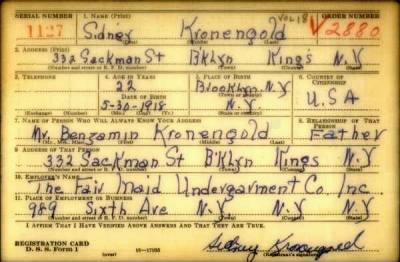 SERIAL NUMBER 1. NAME (Print) ORDER NUMBER
1127 Sidney Kronengold V2880
(First) (Middle) (Last)
2. ADDRESS (Print)
332 Sackman St B'klyn King's N.Y
(Number and street or R. F. D. number) (Town) (County) (State)
3. TELEPHONE 4. AGE IN YEARS 5. PLACE OF BIRTH 6. COUNTRY OF CITIZENSHIP
22 Brooklyn N.Y
DATE OF BIRTH (Town or county)
5-30-1918 N.Y. U.S.A
(Exchange) (Number) (Mo.) (Day) (Yr.) (State or country)
7. NAME OF PERSON WHO WILL ALWAYS KNOW YOUR ADDRESS 8. RELATIONSHIP OF THAT PERSON
Mr. Benzamin Kronengold Father
(Mr., Mrs., Miss) (First) (Middle) (Last)
9. ADDRESS OF THAT PERSON
332 Sackman St B'Klyn Kings N.Y
(Number and street or R. F. D. number) (Town) (County) (State)
10. EMPLOYER'S NAME
The Fair Maid Undergarment Co. Inc.
11. PLACE OF EMPLOYMENT OR BUSINESS
989 Sixth Ave N.Y N.Y N.Y
(Number and street or R. F. D. number) (Town) (County) (State)
I AFFIRM THAT I HAVE VERIFIED ABOVE ANSWERS AND THAT THEY ARE TRUE.
REGISTRATION CARD
D. S. S. Form 1 (over) 16-17105 (Registrant's signature)
Sidney Kronengold